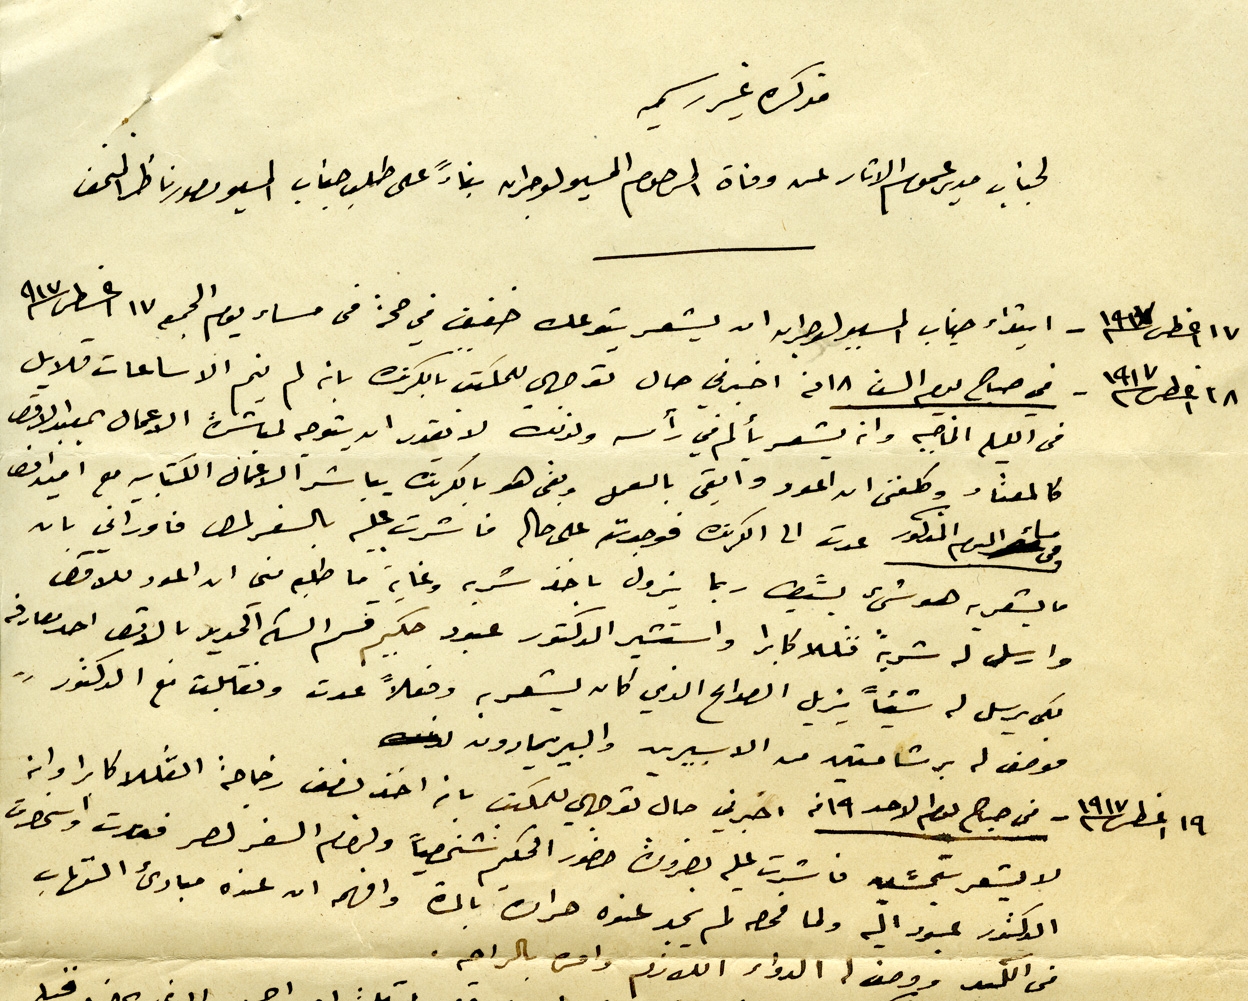 مذكره غير رسميه
لجناب مدير عموم الاثار عن وفاة المرحوم المسيو لوجران بناءً على طلب جناب المسيو ناظر المتحف
١٧ اغسطس ١٩١٧ - ابتداء جناب المسيو لوجران ان يشعر بتوعك خفيف في صحته في مساء يوم الجمعه ١٧ اغسطس ٩١٧
١٨ اغسطس ١٩١٧ - في صباح يوم السبت ١٨ منه اخبرني حال توجهي للمكتب بالكرنك بانه لم ينم الا ساعات قلايل
في الليله الماضيه وانه يشعر بألم في رأسه ولذلك لا يقدر ان يتوجه لمباشرة الاعمال بمعبد الاقصر
كالمعتاد وكلفني ان اعود وابقى بالعمل وبقى هو بالكرنك يباشر الاعمال الكتابيه مع
وفي مساء اليوم المذكور عدت الى الكرنك فوجدته على حاله فاشرت عليه بالسفر لمصر فاوراني بان
ما يشعر به هو شيء بسيط ربما يزول باخذ شربه وغاية ما طلبه مني ان اعود للاقصر
وارسل له شربة فللاكابرا واستشير الدكتور عبود حكيم قسم السكه الحديد بالاقصر احد معارفه
لكي يرسل له شيئاً يزيل الصداع الذي كان يشعر به وفعلاً عدت وتقابلت مع الدكتور
فوصف له برشامتين من الاسبيرين والبيراميدون
١٩ اغسطس ١٩١٧ - في صباح يوم الاحد ١٩ منه اخبرني حال توجهي للمكتب بانه اخذ نصف زجاجة الفللاكابرا وانه
لا يشعر بتحسين فاشرت عليه بضرورة حضور الحكيم شخصياً ولزوم السفر لمصر فعدت واستحضرت
الدكتور عبود اليه ولما فحصه لم يجد عنده حرارة بالمرة وافهم ان عنده مبادئ التهاب
في الكبد ووصف له الدواء اللازم وامره بالراحه .